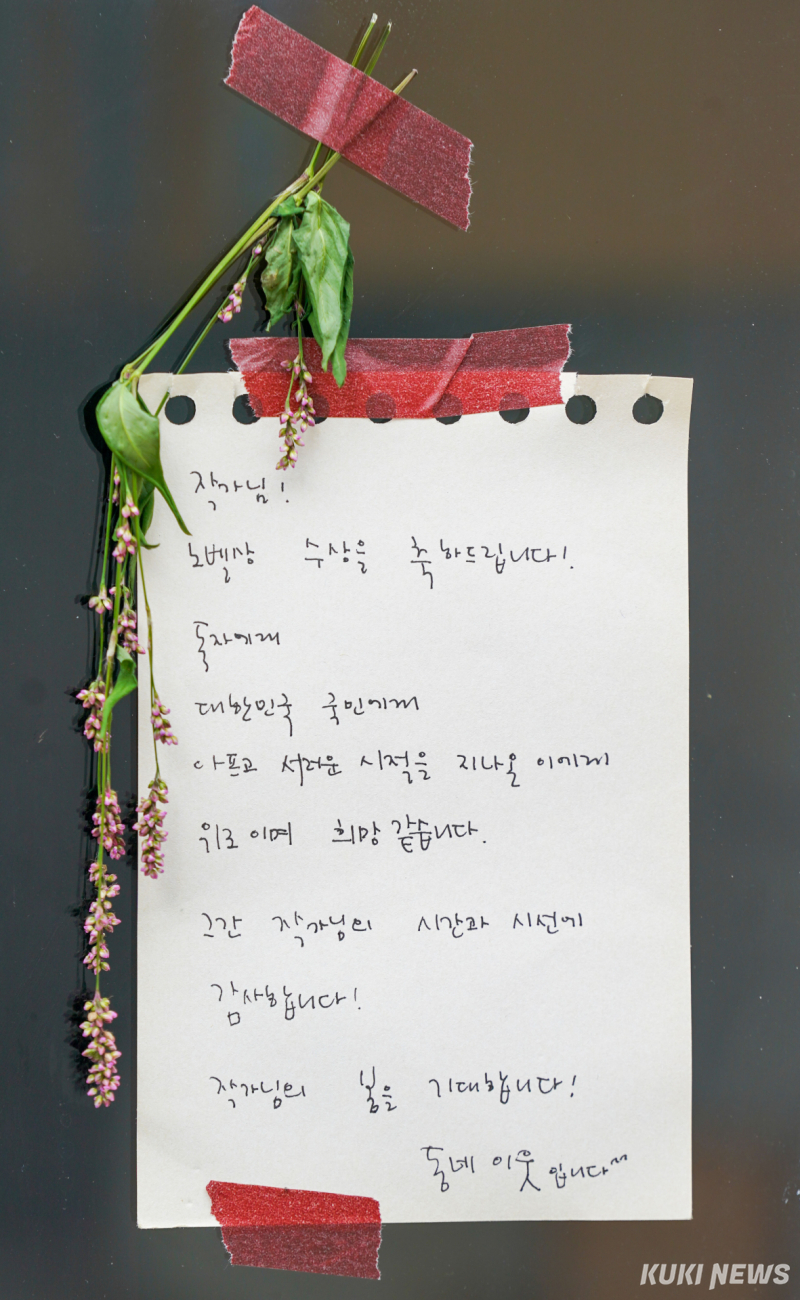 작가님!
노벨상 수상을 축하드립니다!
독자에게
대한민국 국민에게
아프고 서러운 시절을 지나온 이에게
위로이며 희망 같습니다.
그간 작가님의 시간과 시선에
감사합니다!
작가님의 봄을 기대합니다!
동네 이웃입니다~
KUKI NEWS